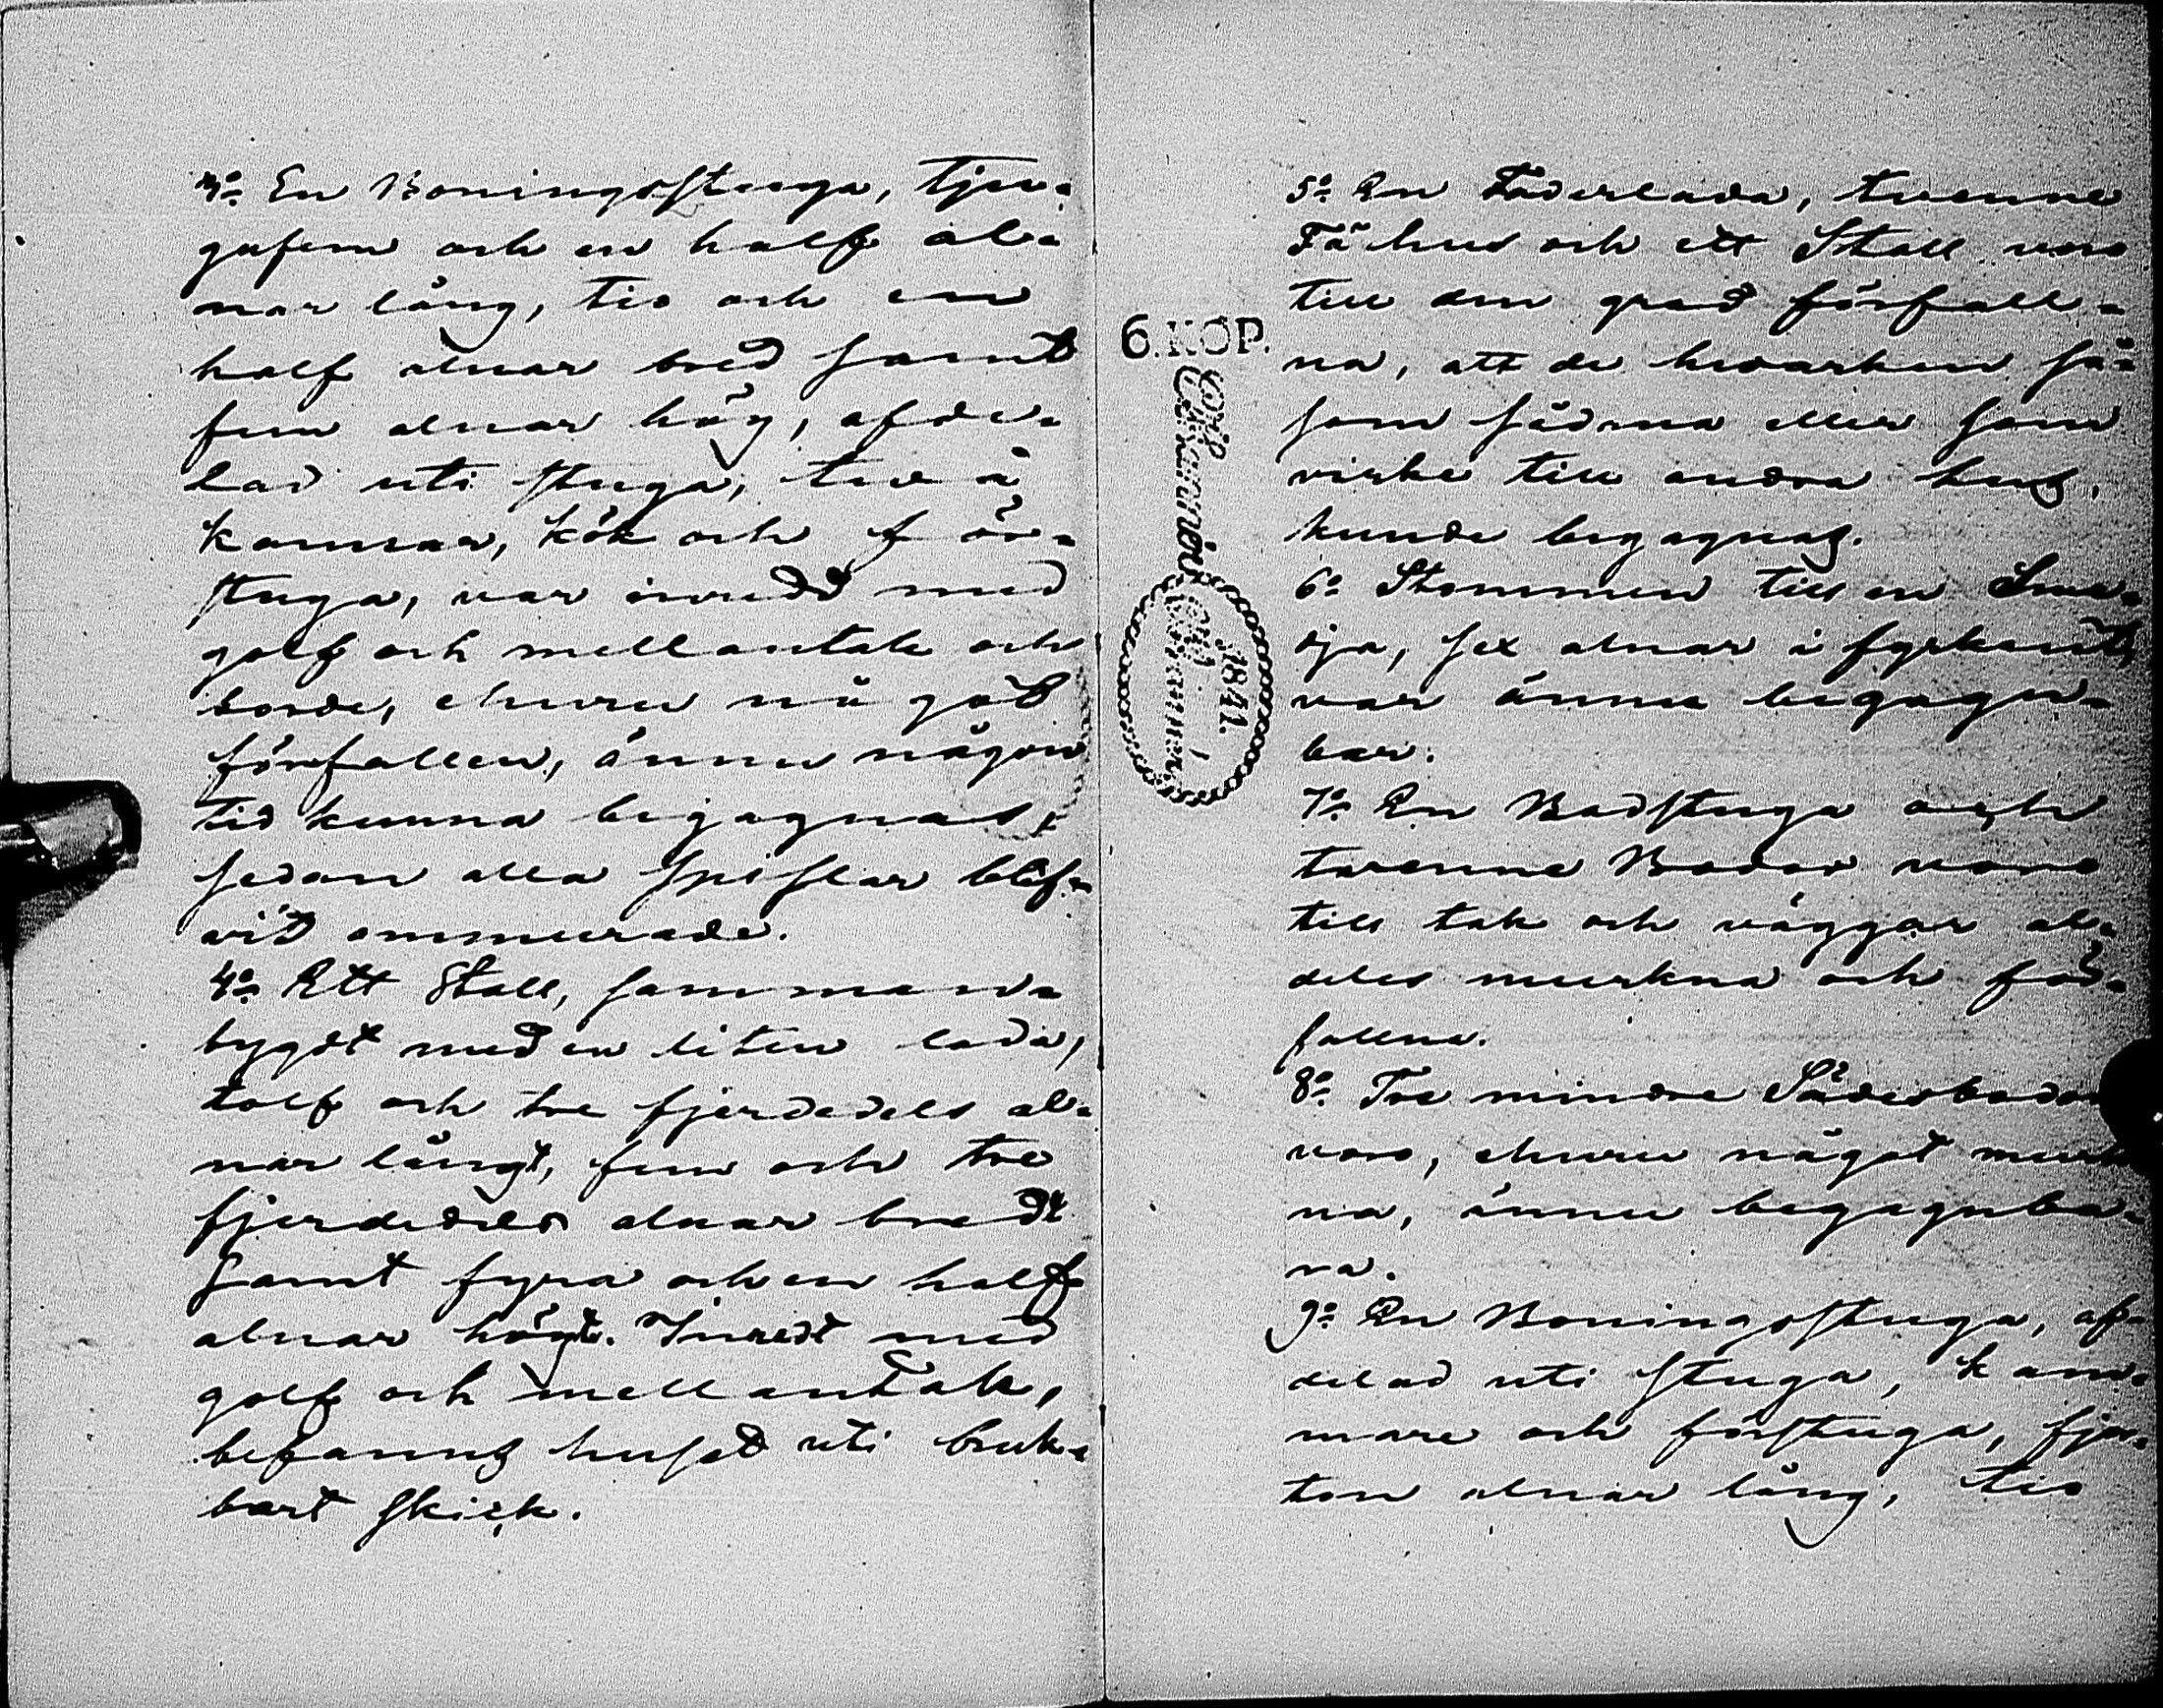 3:o En Boningsstuga, tju-
gufem och en half al-
nar lång, tio och en
half alnar bred samt
fem alnar hög, afde-
lad uti stuga, två
kamrar, kök och för-
stuga, var inredd med
golf och mellantak och
borde, ehuru något
förfallen, ännu någon
tid kunna begagnas,
sedan alla spislar blif-
vit ommurade.
4:o Ett Stall, samman-
bygdt med en liten lada,
tolf och tre fjerdedels al-
nar långt, fem och tre
fjerdedels alnar bredt
samt fyra och en half
alnar högt. Inredt med
golf och mellantak,
befanns huset uti bruk-
bart skick.
6. KOP.
1841.
5:o En Foderlada, tvenne
Fähus och ett Stall voro
till den grad förfall-
na, att de hvarken så-
som sådana eller som
virke till andra hus
kunde begagnas.
6:o Stommen till en Sme-
dja, sex alnar i fyrkant,
var ännu begagn-
bar.
7:o En Badstuga och
tvenne Bodar voro
till tak och väggar al-
deles murkna och för-
fallna.
8:o Tre mindre Sädesbodar
voro, ehuru något murk
na, ännu begagnba-
ra.
9:o En Boningsstuga, af-
delad uti stuga, kam-
mare och förstuga, fjor-
ton alnar lång, tio